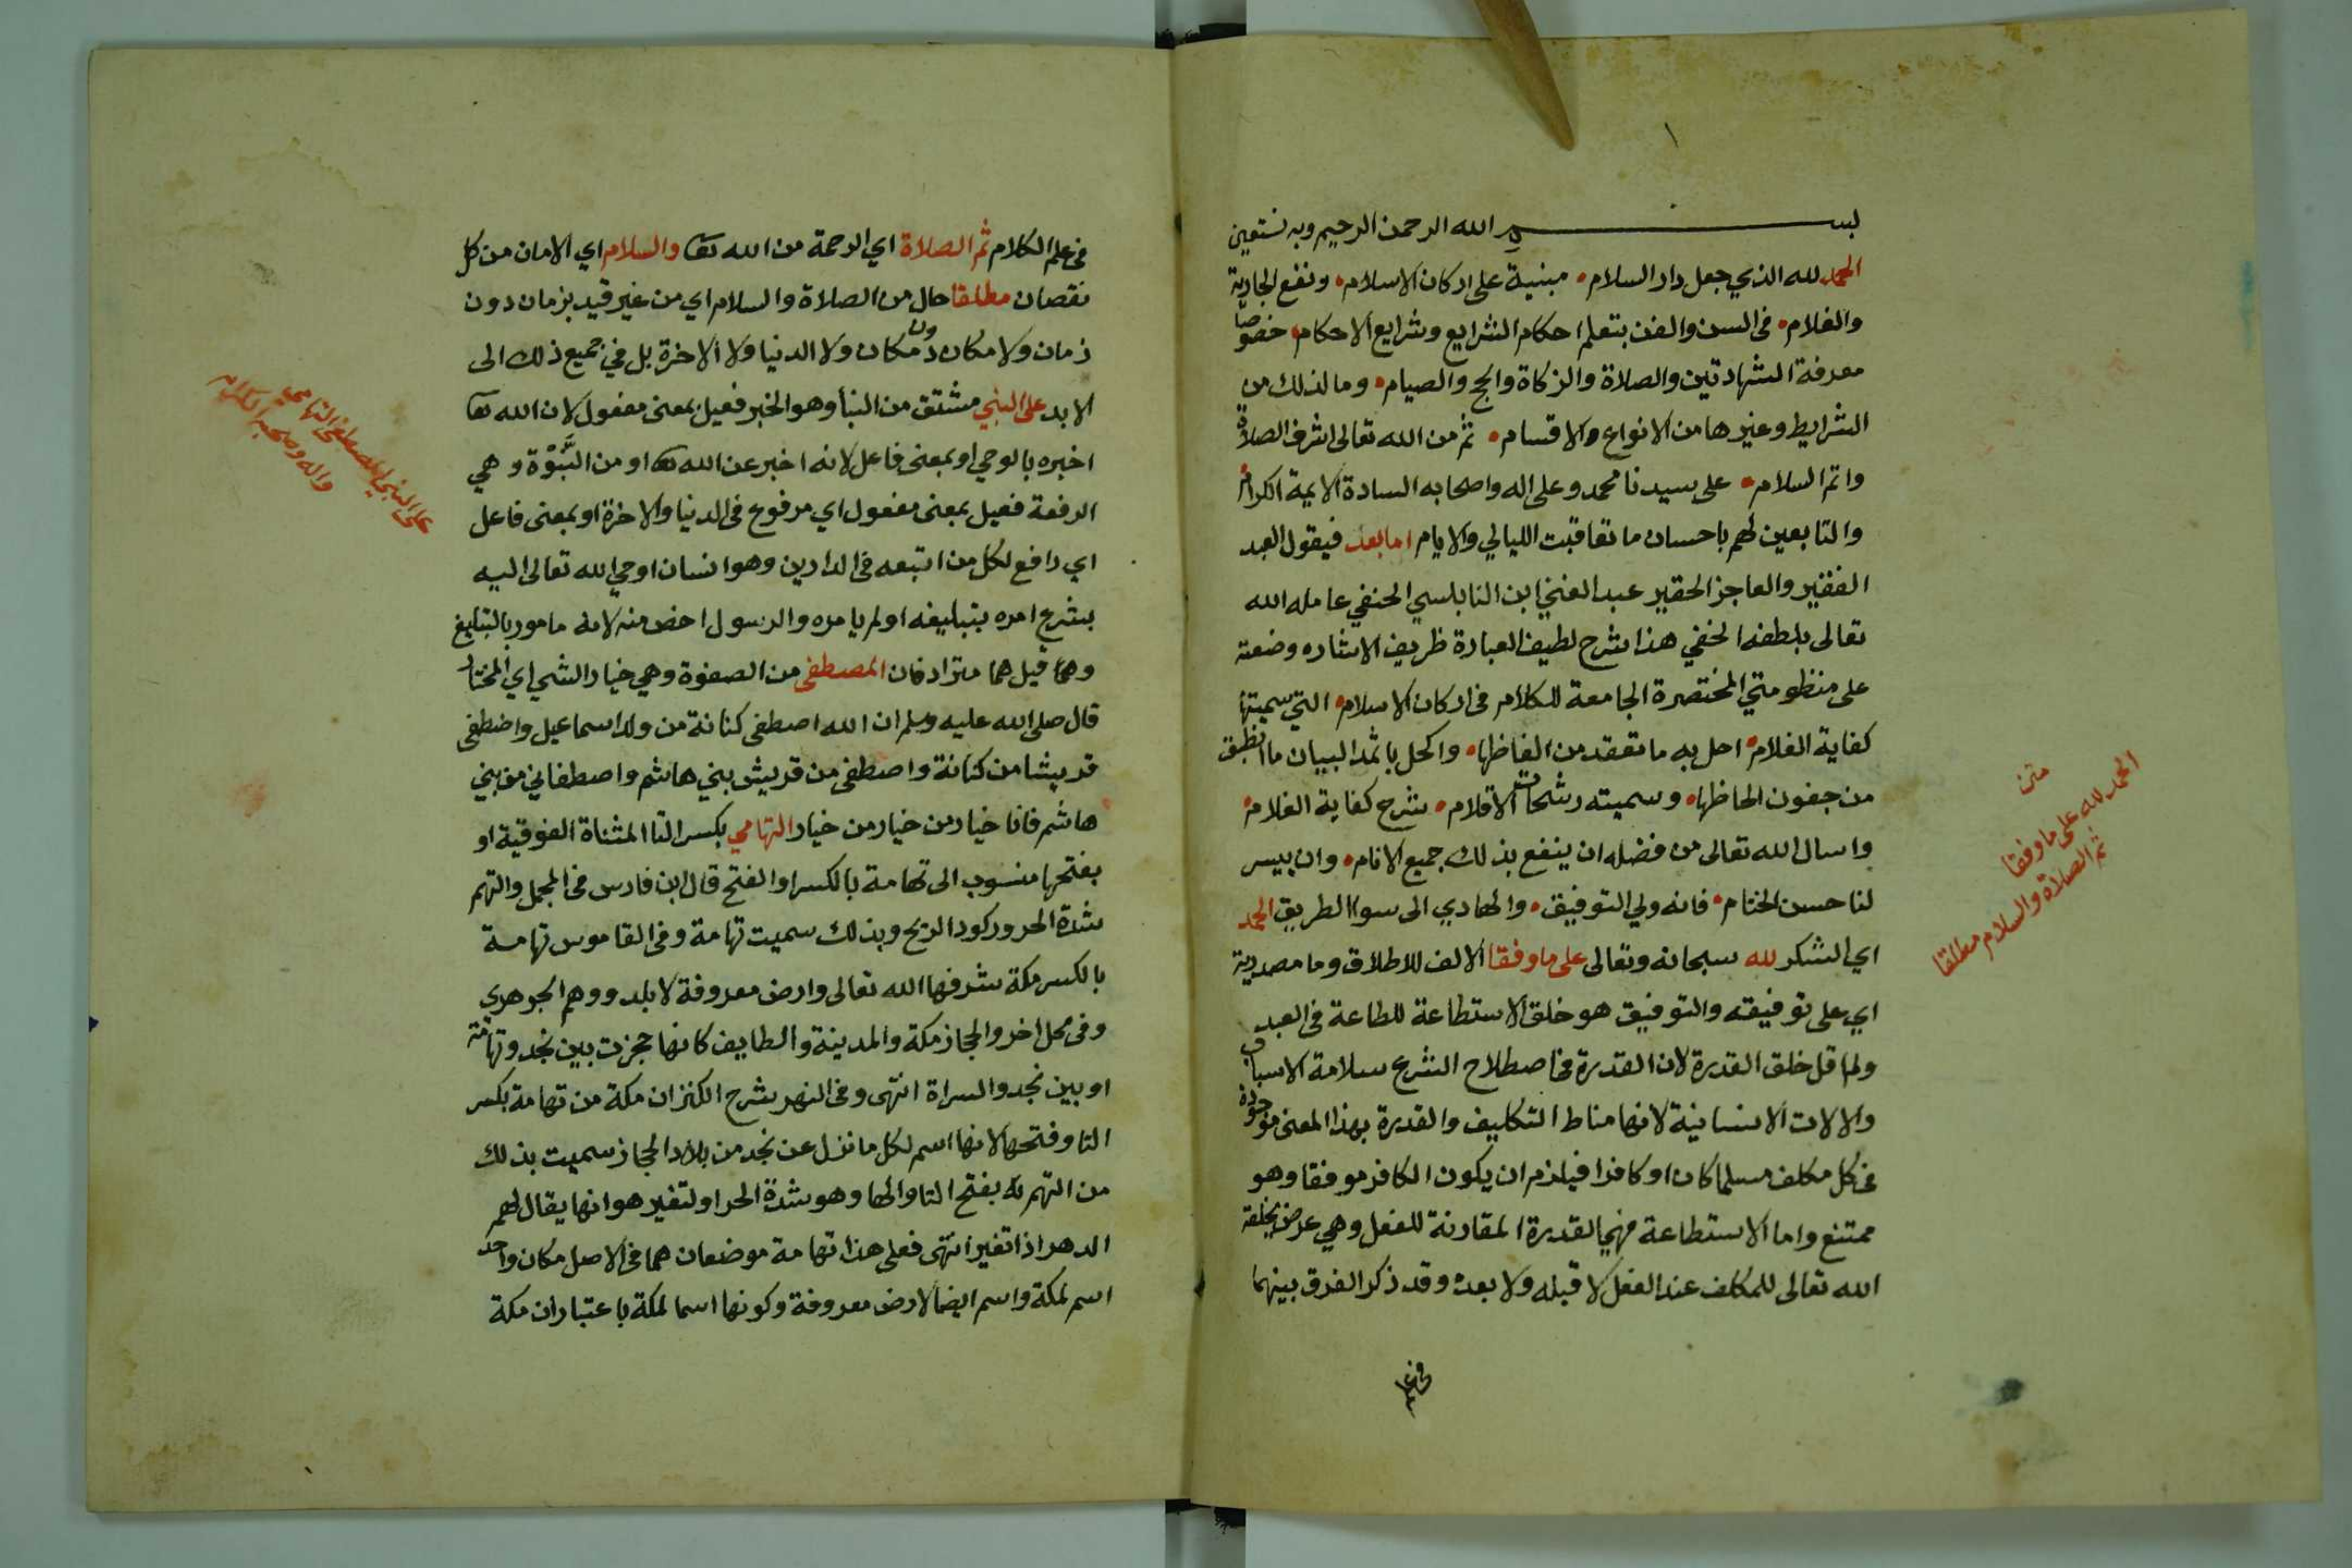 ١
بسم الله الرحمن الرحيم وبه نستعين
الحمد لله الذي جعل دار السلام • مبنية على اركان الاسلام • ونفع الجارية
والغلام • فى السن والفن بتعلم احكام الشرايع وشرايع الاحكام • خصوصا
معرفة الشهادتين والصلاة والزكاة والحج والصيام • وما لذلك من
الشرايط وغيرها من الانواع والاقسام • ثم من الله تعالى اشرف الصلاة
واتم السلام • على سيدنا محمد وعلى اله واصحابه السادة الايمة الكرام •
والتابعين لهم باحسان ما تعاقبت الليالي والايام اما بعد فيقول العبد
الفقير والعاجز الحقير عبد الغني ابن النابلسي الحنفي عامله الله
تعالى بلطفه الخفي هذا شرح لطيف العبارة ظريف الاشاره وضعته
على منظومتي المختصرة الجامعة للكلام فى اركان الاسلام • التي سميتها
كفاية الغلام • احل به ما تعقد من الفاظها • واكحل باثمد البيان ما انطبق
من جفون الحاظها • وسميته رشحات الاقلام • شرح كفاية الغلام •
واسال الله تعالى من فضله ان ينفع بذلك جميع الانام • وان ييسر
لنا حسن الختام • فانه ولي التوفيق • والهادي الى سوا الطريق الحمد
اي الشكر لله سبحانه وتعالى على ما وفقا الالف للاطلاق وما مصدرية
اي على توفيقه والتوفيق هو خلق الاستطاعة للطاعة فى العبد
ولم اقل خلق القدرة لان القدرة فى اصطلاح الشرع سلامة الاسباب
والالات الانسانية لانها مناط التكليف والقدرة بهذا المعنى موجودة
فى كل مكلف مسلما كان او كافرا فيلزم ان يكون الكافر موفقا وهو
ممتنع واما الاستطاعة فهي القدرة المقارنة للفعل وهي عرض يخلقه
الله تعالى للمكلف عند الفعل لا قبله ولا بعده وقد ذكر الفرق بينهما
فى علم
متن
الحمد لله على ما وفقا
ثم الصلاة والسلام مطلقا
فى علم الكلام ثم الصلاة اي الرحمة من الله تعا والسلام اي الامان من كل
نقصان مطلقا حال من الصلاة والسلام اي من غير قيد بزمان دون
زمان ولا مكان دون مكان ولا الدنيا ولا الاخرة بل في جميع ذلك الى
الابد على النبي مشتق من النبأ وهو الخبر فعيل بمعنى مفعول لان الله تعا
اخبره بالوحي او بمعنى فاعل لانه اخبر عن الله تعا او من النَّبْوَة وهي
الرفعة فعيل بمعنى مفعول اي مرفوع فى الدنيا والاخرة او بمعنى فاعل
اي رافع لكل من اتبعه فى الدارين وهو انسان اوحي الله تعالى اليه
بشرع امره بتبليغه او لم يامره والرسول اخص منه لانه مامور بالتبليغ
وهما قيل هما مترادفان المصطفى من الصفوة وهي خيار الشي اي المختار
قال صلى الله عليه وسلم ان الله اصطفى كنانة من ولد اسماعيل واصطفى
قريشا من كنانة واصطفى من قريش بني هاشم واصطفاني من بني
هاشم فانا خيار من خيار من خيار التهامي بكسر التا المثناة الفوقية او
بفتحها منسوب الى تهامة بالكسر او الفتح قال ابن فارس فى المجمل والتهم
شدة الحر وركود الريح وبذلك سميت تهامة وفى القاموس تهامة
بالكسر مكة شرفها الله تعالى وارض معروفة لا بلد ووهم الجوهري
وفى محل اخر والحجاز مكة والمدينة والطايف كانها حجزت بين نجد وتهامة
او بين نجد والسراة انتهى وفى النهر شرح الكنز ان مكة من تهامة بكسر
التا وفتحها لانها اسم لكل ما نزل عن نجد من بلاد الحجاز سميت بذلك
من التهم بفتح التا والها وهو شدة الحر او لتغير هوانها يقال تهم
الدهر اذا تغير انتهى فعلى هذا تهامة موضعان هما فى الاصل مكان واحد
اسم لمكة واسم ايضا لارض معروفة وكونها اسما لمكة باعتبار ان مكة
على النبي المصطفى التهامي
واله وصحبه الكرام